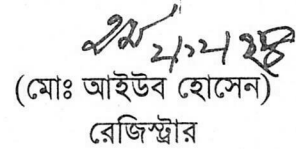 (মোঃ আইউব হোসেন)
রেজিস্ট্রার